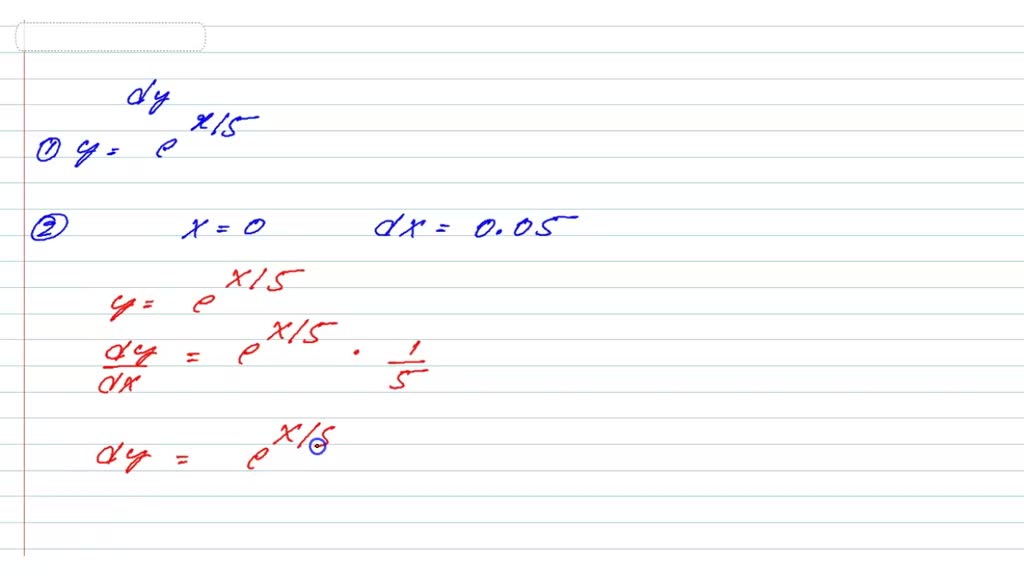 dy
① y = e^{x/5}
② x = 0 dx = 0.05
y = e^{x/5}
dy/dx = e^{x/5} · 1/5
dy = e^{x/5}